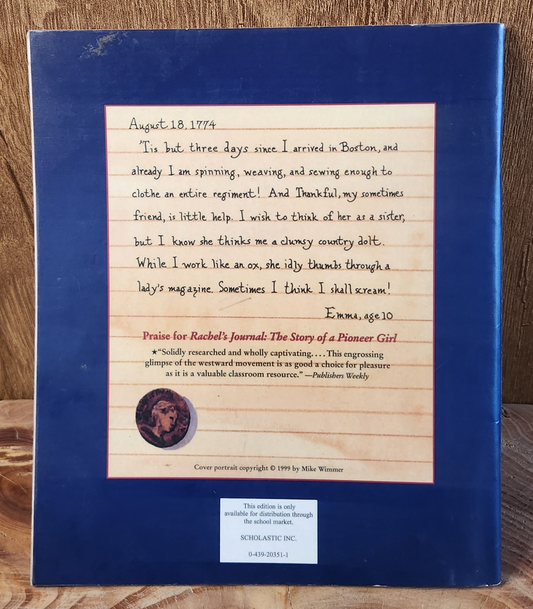 August 18, 1774
'Tis but three days since I arrived in Boston, and
already I am spinning, weaving, and sewing enough to
clothe an entire regiment! And Thankful, my sometimes
friend, is little help. I wish to think of her as a sister,
but I know she thinks me a clumsy country dolt.
While I work like an ox, she idly thumbs through a
lady's magazine. Sometimes I think I shall scream!
Emma, age 10
Praise for Rachel's Journal: The Story of a Pioneer Girl
★"Solidly researched and wholly captivating. . . . This engrossing
glimpse of the westward movement is as good a choice for pleasure
as it is a valuable classroom resource." —Publishers Weekly
Cover portrait copyright © 1999 by Mike Wimmer
This edition is only
available for distribution through
the school market.
SCHOLASTIC INC.
0-439-20351-1